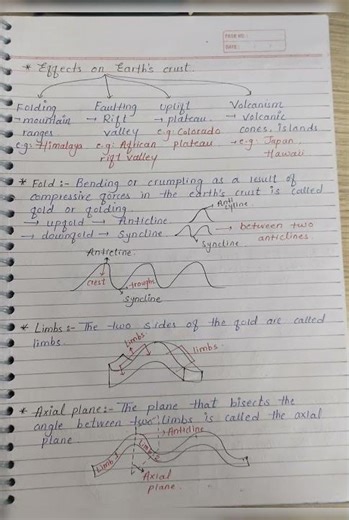 PAGE NO.:
DATE:
* Effects on Earth's crust.
Folding Faulting Uplift Volcanism
→ mountain → Rift → plateau. → volcanic
ranges. valley e.g: Colorado cones, islands
e.g: Himalaya e.g: African plateau → e.g: Japan,
rift valley Hawaii
* Fold :- Bending or crumpting as a result of
compressive forces in the earth's crust is called
fold or folding
→ upfold → Anticline. Anticline
→ downfold → Syncline. → between two
Syncline anticlines.
Anticline.
crest troughs
Syncline
* Limbs :- The two sides of the fold are called
limbs.
limbs limbs.
* Axial plane :- The plane that bisects the
angle between two limbs is called the axial
plane
→ Anticline
Limb 1 Limb 2
→ Axial
plane.